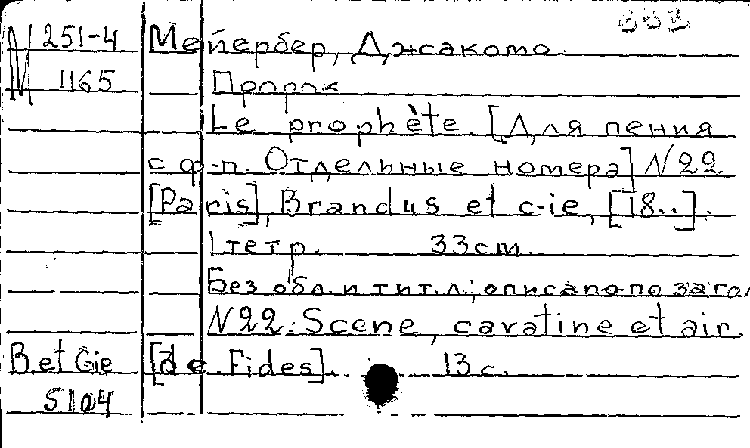 М 251-4 Мейербер, Джакомо.
1165 Пророк
Le prophète. [Для пения
с ф-п. Отдельные номера] N22
[Paris], Brandus et c-ie, [18..].
1 тетр. 33 см.
Без обл. и тит. л.; описано по заго
N22: Scene, cavatine et air
B. et Cie [de Fides]. 13 с.
5104